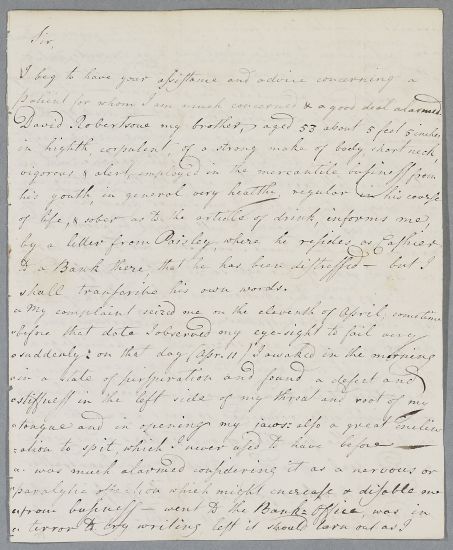 Sir,
I beg to have your assistance and advice concerning a
patient for whom I am much concerned & a good deal alarmed.
David Robertsone my brother, aged 53 about 5 feet 5 inches
in highth, corpulent of a strong make of body, short neck,
vigorous & alert, employed in the mercantile business from
his youth, in general very health, regular in his course
of life, & sober as to the article of drink, informs me,
by a letter from Paisley, where he resides as Cashier
to a Bank there, that he has been distressed – but I
shall transcribe his own words.
"My complaint seized me on the eleventh of April, sometime
"before that date I observed my eye-sight to fail very
"suddenly: on that day (Apr. 11) I awaked in the morning
"in a state of perspiration and found a defect and
"stiffness in the left side of my throat and root of my
"tongue and in opening my jaws: also a great inclin-
"ation to spit, which I never used to have before
"I was much alarmed considering it as a nervous or
"paralytic affection which might encrease & disable me
"from business – went to the Bank-office, was in
"terror to try writing, lest it should turn out as I